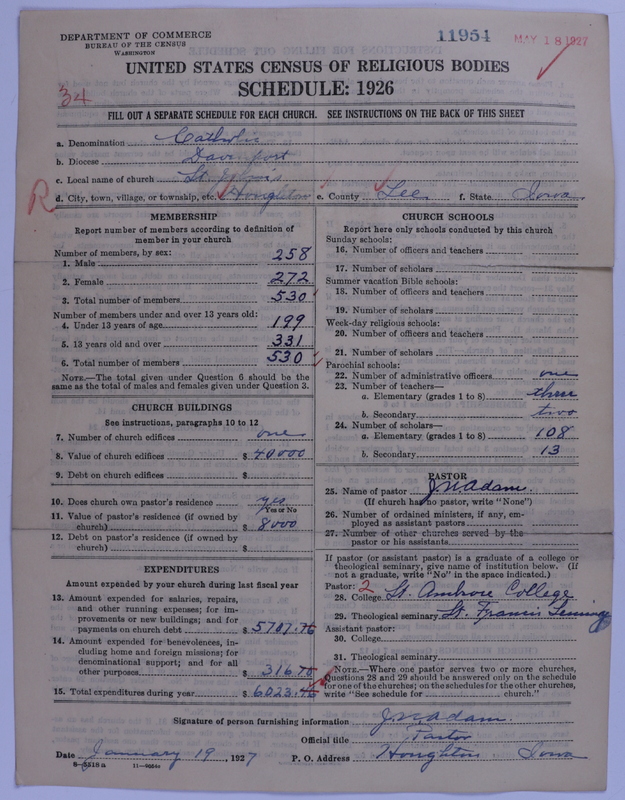 DEPARTMENT OF COMMERCE
BUREAU OF THE CENSUS
WASHINGTON
11954
MAY 18 1927
UNITED STATES CENSUS OF RELIGIOUS BODIES
SCHEDULE: 1926
34
FILL OUT A SEPARATE SCHEDULE FOR EACH CHURCH. SEE INSTRUCTIONS ON THE BACK OF THIS SHEET
a. Denomination Catholic
b. Diocese Davenport
c. Local name of church St. John's
R
d. City, town, village, or township, etc. Houghton e. County Lee f. State Iowa
MEMBERSHIP
Report number of members according to definition of
member in your church
Number of members, by sex:
1. Male 258
2. Female 272
3. Total number of members 530
Number of members under and over 13 years old:
4. Under 13 years of age 199
5. 13 years old and over 331
6. Total number of members 530
NOTE.—The total given under Question 6 should be the
same as the total of males and females given under Question 3.
CHURCH BUILDINGS
See instructions, paragraphs 10 to 12
7. Number of church edifices one
8. Value of church edifices $ 40000
9. Debt on church edifices $
10. Does church own pastor's residence yes
Yes or No
11. Value of pastor's residence (if owned by
church) $ 8000
12. Debt on pastor's residence (if owned by
church) $
EXPENDITURES
Amount expended by your church during last fiscal year
13. Amount expended for salaries, repairs,
and other running expenses; for im-
provements or new buildings; and for
payments on church debt $ 5707.
14. Amount expended for benevolences, in-
cluding home and foreign missions; for
denominational support; and for all
other purposes $ 316.
15. Total expenditures during year $ 6023.
CHURCH SCHOOLS
Report here only schools conducted by this church
Sunday schools:
16. Number of officers and teachers
17. Number of scholars
Summer vacation Bible schools:
18. Number of officers and teachers
19. Number of scholars
Week-day religious schools:
20. Number of officers and teachers
21. Number of scholars
Parochial schools:
22. Number of administrative officers one
23. Number of teachers—
a. Elementary (grades 1 to 8) three
b. Secondary two
24. Number of scholars—
a. Elementary (grades 1 to 8) 108
b. Secondary 13
PASTOR
25. Name of pastor J. N. Adam
(If church has no pastor, write "None")
26. Number of ordained ministers, if any, em-
ployed as assistant pastors
27. Number of other churches served by the
pastor or his assistants
If pastor (or assistant pastor) is a graduate of a college or
theological seminary, give name of institution below. (If
not a graduate, write "No" in the space indicated.)
Pastor: 2
28. College St. Ambrose College
29. Theological seminary St. Francis
Assistant pastor:
30. College
31. Theological seminary
NOTE.—Where one pastor serves two or more churches,
Questions 28 and 29 should be answered only on the schedule
for one of the churches; on the schedules for the other churches,
write "See schedule for church."
Signature of person furnishing information J. N. Adam
Official title Pastor
Date January 19, 1927 P. O. Address Houghton Iowa
8—5518a 11—9654c